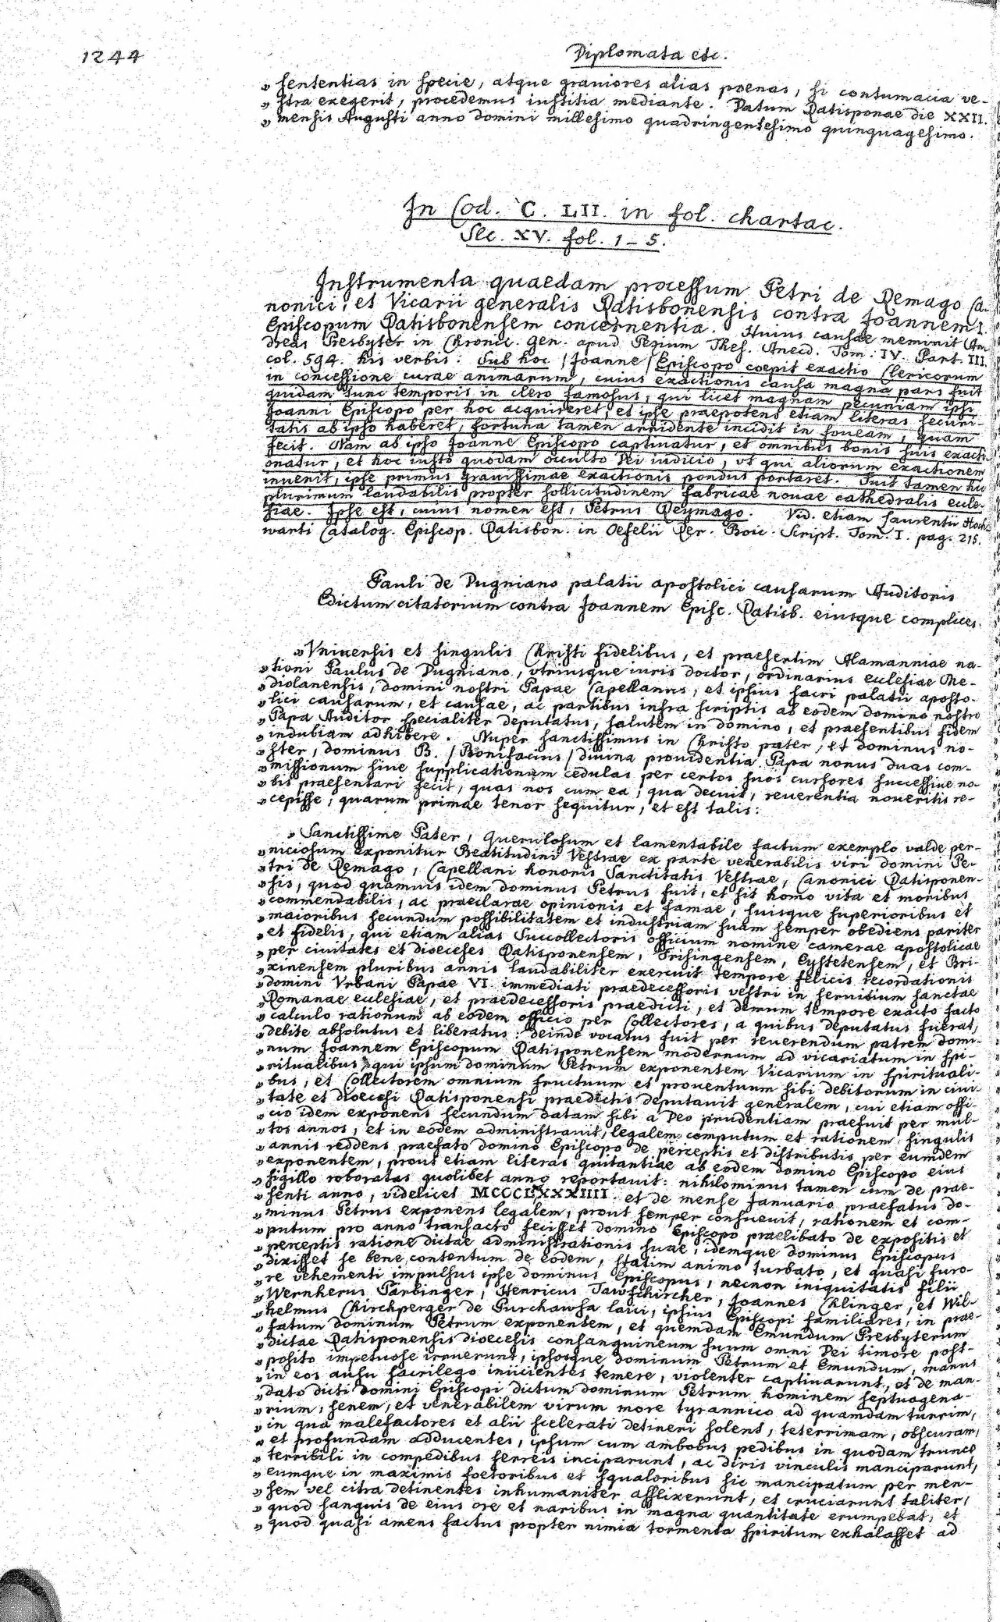 1244
Diplomata etc.
„ sententias in specie, atque graviores alias poenas, si contumacia ve-
„ stra exegerit, procedemus iustitia mediante. Datum Ratisponae die XXII.
„ mensis Augusti anno domini millesimo quadringentesimo quinquagesimo.
In Cod. C. LII. in fol. chartac.
Sec. XV. fol. 1-5.
Instrumenta quaedam processum Petri de Remago Ca-
nonici, et Vicarii generalis Ratisbonensis contra Joannem I.
Episcopum Ratisbonensem concernentia. Huius causae meminit An
dreas Presbyter in Chronic. gen. apud Pezium Thes. Anecd. Tom. IV. Part. III.
col. 594. his verbis: Sub hoc /Joanne/ Episcopo coepit exactio Clericorum
in concessione curae animarum, cuius exactionis causa magna pars fuit
quidam tunc temporis in clero famosus, qui licet magnam pecuniam ipsi
Joanni Episcopo per hoc acquireret, et ipse praepotens etiam literas securi-
tatis ab ipso haberet, fortuna tamen arridente incidit in foueam, quam
fecit. Nam ab ipso Joanne Episcopo captivatur, et omnibus bonis suis exacti
onatur, et hoc iusto quodam occulto Dei iudicio, vt qui aliorum exactionem
invenit, ipse primus gravissimae exactionis pondus portaret. Fuit tamen hic
plurimum laudabilis propter sollicitudinem fabricae nouae cathedralis eccle-
siae. Ipse est, cuius nomen est, Petrus Reymago. Vid. etiam Laurentii Hoch-
warti Catalog. Episcop. Ratisbon. in Oefelii Rer. Boic. Script. Tom. I. pag. 215.
Pauli de Dugniano palatii apostolici causarum Auditoris
Edictum citatorium contra Joannem Episc. Ratisb. eiusque complices.
„Vniuersis et singulis Christi fidelibus, et praesertim Alamanniae na-
„ tioni Paulus de Dugniano, vtriusque iuris doctor, ordinarius ecclesiae Me-
„ diolanensis, domini nostri Papae Capellanus, et ipsius sacri palatii aposto-
„ lici causarum, et causae, ac partibus infra scriptis ab eodem domino nostro
„ Papa Auditor specialiter deputatus, salutem in domino, et praesentibus fidem
„ indubiam adhibere. Nuper sanctissimus in Christo pater, et dominus no-
„ ster, dominus B. /Bonifacius/ divina prouidentia Papa nonus duas com-
„ missionum siue supplicationum cedulas per certos suos cursores successiue no-
„ bis praesentari fecit, quas nos cum ea, qua decuit, reuerentia noueritis re-
„ cepisse, quarum primae tenor sequitur, et est talis:
„ Sanctissime Pater, querulosum et lamentabile factum exemplo valde per-
„ niciosum exponitur Beatitudini Vestrae ex parte venerabilis viri domini Pe-
„ tri de Remago, Capellani honoris Sanctitatis Vestrae, Canonici Ratisponen-
„ sis, quod quamuis idem dominus Petrus fuit, et sit homo vita et moribus
„ commendabilis, ac praeclarae opinionis et famae, suisque superioribus et
„ maioribus secundum possibilitatem et industriam suam semper obediens pariter
„ et fidelis, qui etiam alias Succollectoris officium nomine camerae apostolicae
„ per civitates et dioeceses Ratisponensem, Frisingensem, Eystetensem, et Bri-
„ xinensem pluribus annis laudabiliter exercuit tempore felicis recordationis
„ domini Vrbani Papae VI. immediati praedecessoris vestri in seruitium sanctae
„ Romanae ecclesiae, et praedecessoris praedicti, et demum tempore exacto facto
„ calculo rationum ab eodem officio per Collectores, a quibus deputatus fuerat,
„ debite absolutus et liberatus: deinde vocatus fuit per reuerendum patrem domi-
„ num Joannem Episcopum Ratisponensem modernum ad vicariatum in spi-
„ ritualibus, qui ipsum dominum Petrum exponentem Vicarium in spirituali-
„ bus, et Collectorem omnium fructuum et prouentuum sibi debitorum in ciui-
„ tate et dioecesi Ratisponensi praedictis deputauit generalem, cui etiam offi-
„ cio idem exponens secundum datam sibi a Deo prudentiam praefuit per mul-
„ tos annos, et in eodem administrauit, legalem computum et rationem singulis
„ annis reddens praefato domino Episcopo de perceptis et distributis per eumdem
„ exponentem, prout etiam literas quitantiae ab eodem domino Episcopo eius
„ sigillo roboratas quolibet anno reportauit: nihilominus tamen cum de prae-
„ senti anno, videlicet MCCCLXXXXIIII. et de mense Januario praefatus do-
„ minus Petrus exponens legalem, prout semper consueuit, rationem et com-
„ putum pro anno transacto fecisset domino Episcopo praelibato de expositis et
„ perceptis ratione dictae administrationis suae, idemque dominus Episcopus
„ dixisset se bene contentum de eodem, statim animo turbato, et quasi furo-
„ re vehementi impulsus ipse dominus Episcopus, necnon iniquitatis filii
„ Wernherus Parbinger, Henricus Tawfkircher, Joannes Chlinger, et Wil-
„ helmus Chirchperger de Purchawsa laici, ipsius Episcopi familiares, in prae-
„ fatum dominum Petrum exponentem, et quemdam Emundum Presbyterum
„ dictae Ratisponensis dioecesis consanguineum suum omni Dei timore post-
„ posito impetuose irruerunt, ipsosque dominum Petrum et Emundum, manus
„ in eos ausu sacrilego iniicientes temere, violenter captiuarunt, et de man-
„ dato dicti domini Episcopi dictum dominum Petrum hominem septuagena-
„ rium, senem, et venerabilem virum more tyrannico ad quamdam turrim,
„ in qua malefactores et alii scelerati detineri solent, teterrimam, obscuram,
„ et profundam adducentes, ipsum cum ambobus pedibus in quodam trunco
„ terribili in compedibus ferreis inciparunt, ac diris vinculis manciparunt,
„ eumque in maximis foetoribus et squaloribus sic mancipatum per men-
„ sem vel citra detinentes inhumaniter afflixerunt, et cruciarunt taliter,
„ quod sanguis de eius ore et naribus in magna quantitate erumpebat, et
„ quod quasi amens factus propter nimia tormenta spiritum exhalasset ad